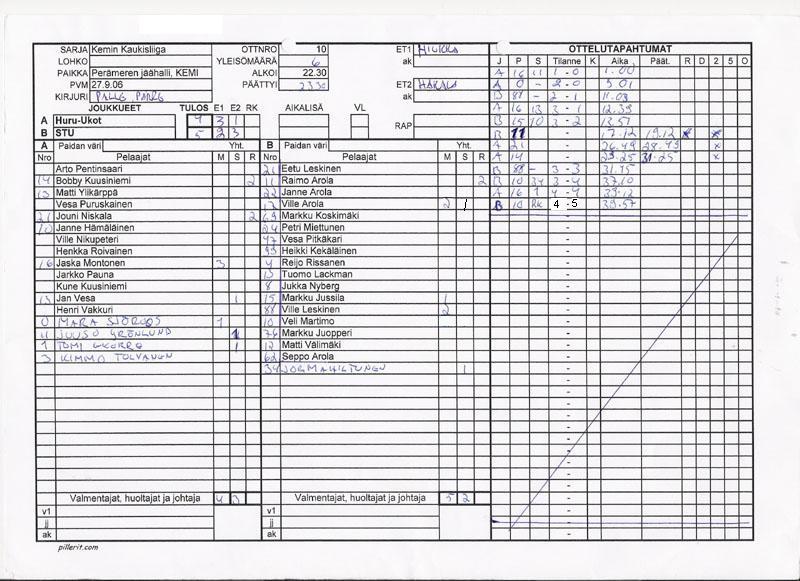 SARJA Kemin Kaukisliiga OTTNRO 10 ET1 HILKKA OTTELUTAPAHTUMAT
LOHKO YLEISÖMÄÄRÄ 6 ak J P S Tilanne K Aika Päät. R D 2 5 O
PAIKKA Perämeren jäähalli, KEMI ALKOI 22.30 A 16 11 1 - 0 1.00
PVM 27.9.06 PÄÄTTYI 2330 ET2 HAKALA A 0 - 2 - 0 5 01
KIRJURI ak B 88 - 2 - 1 11.03
JOUKKUEET TULOS E1 E2 RK AIKALISÄ VL A 16 13 3 - 1 12.39
A Huru-Ukot 4 3 1 B 15 10 3 - 2 13.57
B STU 5 2 3 RAP B 11 - 17.12 19.12 x x
A Paidan väri Yht. B Paidan väri Yht. A 21 - 26.49 28.49 x
Nro Pelaajat M S R Nro Pelaajat M S R A 14 - 29.25 31.25 x
Arto Pentinsaari 21 Eetu Leskinen B 88 - 3 - 3 31.45
14 Bobby Kuusiniemi 2 11 Raimo Arola 2 B 10 34 3 - 4 37.10
13 Matti Ylikärppä 22 Janne Arola A 16 1 4 - 4 39.12
Vesa Puruskainen 17 Ville Arola 2 1 B 10 RK 4 - 5 39.57
21 Jouni Niskala 2 69 Markku Koskimäki
10 Janne Hämäläinen 24 Petri Miettunen
Ville Nikupeteri 97 Vesa Pitkäkari
Henkka Roivainen 99 Heikki Kekäläinen
16 Jaska Montonen 3 4 Reijo Rissanen
Jarkko Pauna 13 Tuomo Lackman
Kune Kuusiniemi 8 Jukka Nyberg
13 Jan Vesa 1 15 Markku Jussila 1
Henri Vakkuri 88 Ville Leskinen 2
0 MARA SJÖROOS 1 10 Veli Martimo
11 JUUSO GRÖNLUND 1 76 Markku Juopperi
1 TOMI 1 12 Matti Välimäki
3 KIMMO TOLVANEN 62 Seppo Arola
34 JORMA HILTUNEN 1
Valmentajat, huoltajat ja johtaja 4 3 Valmentajat, huoltajat ja johtaja 5 2
v1 v1
jj jj
ak ak
pillerit.com